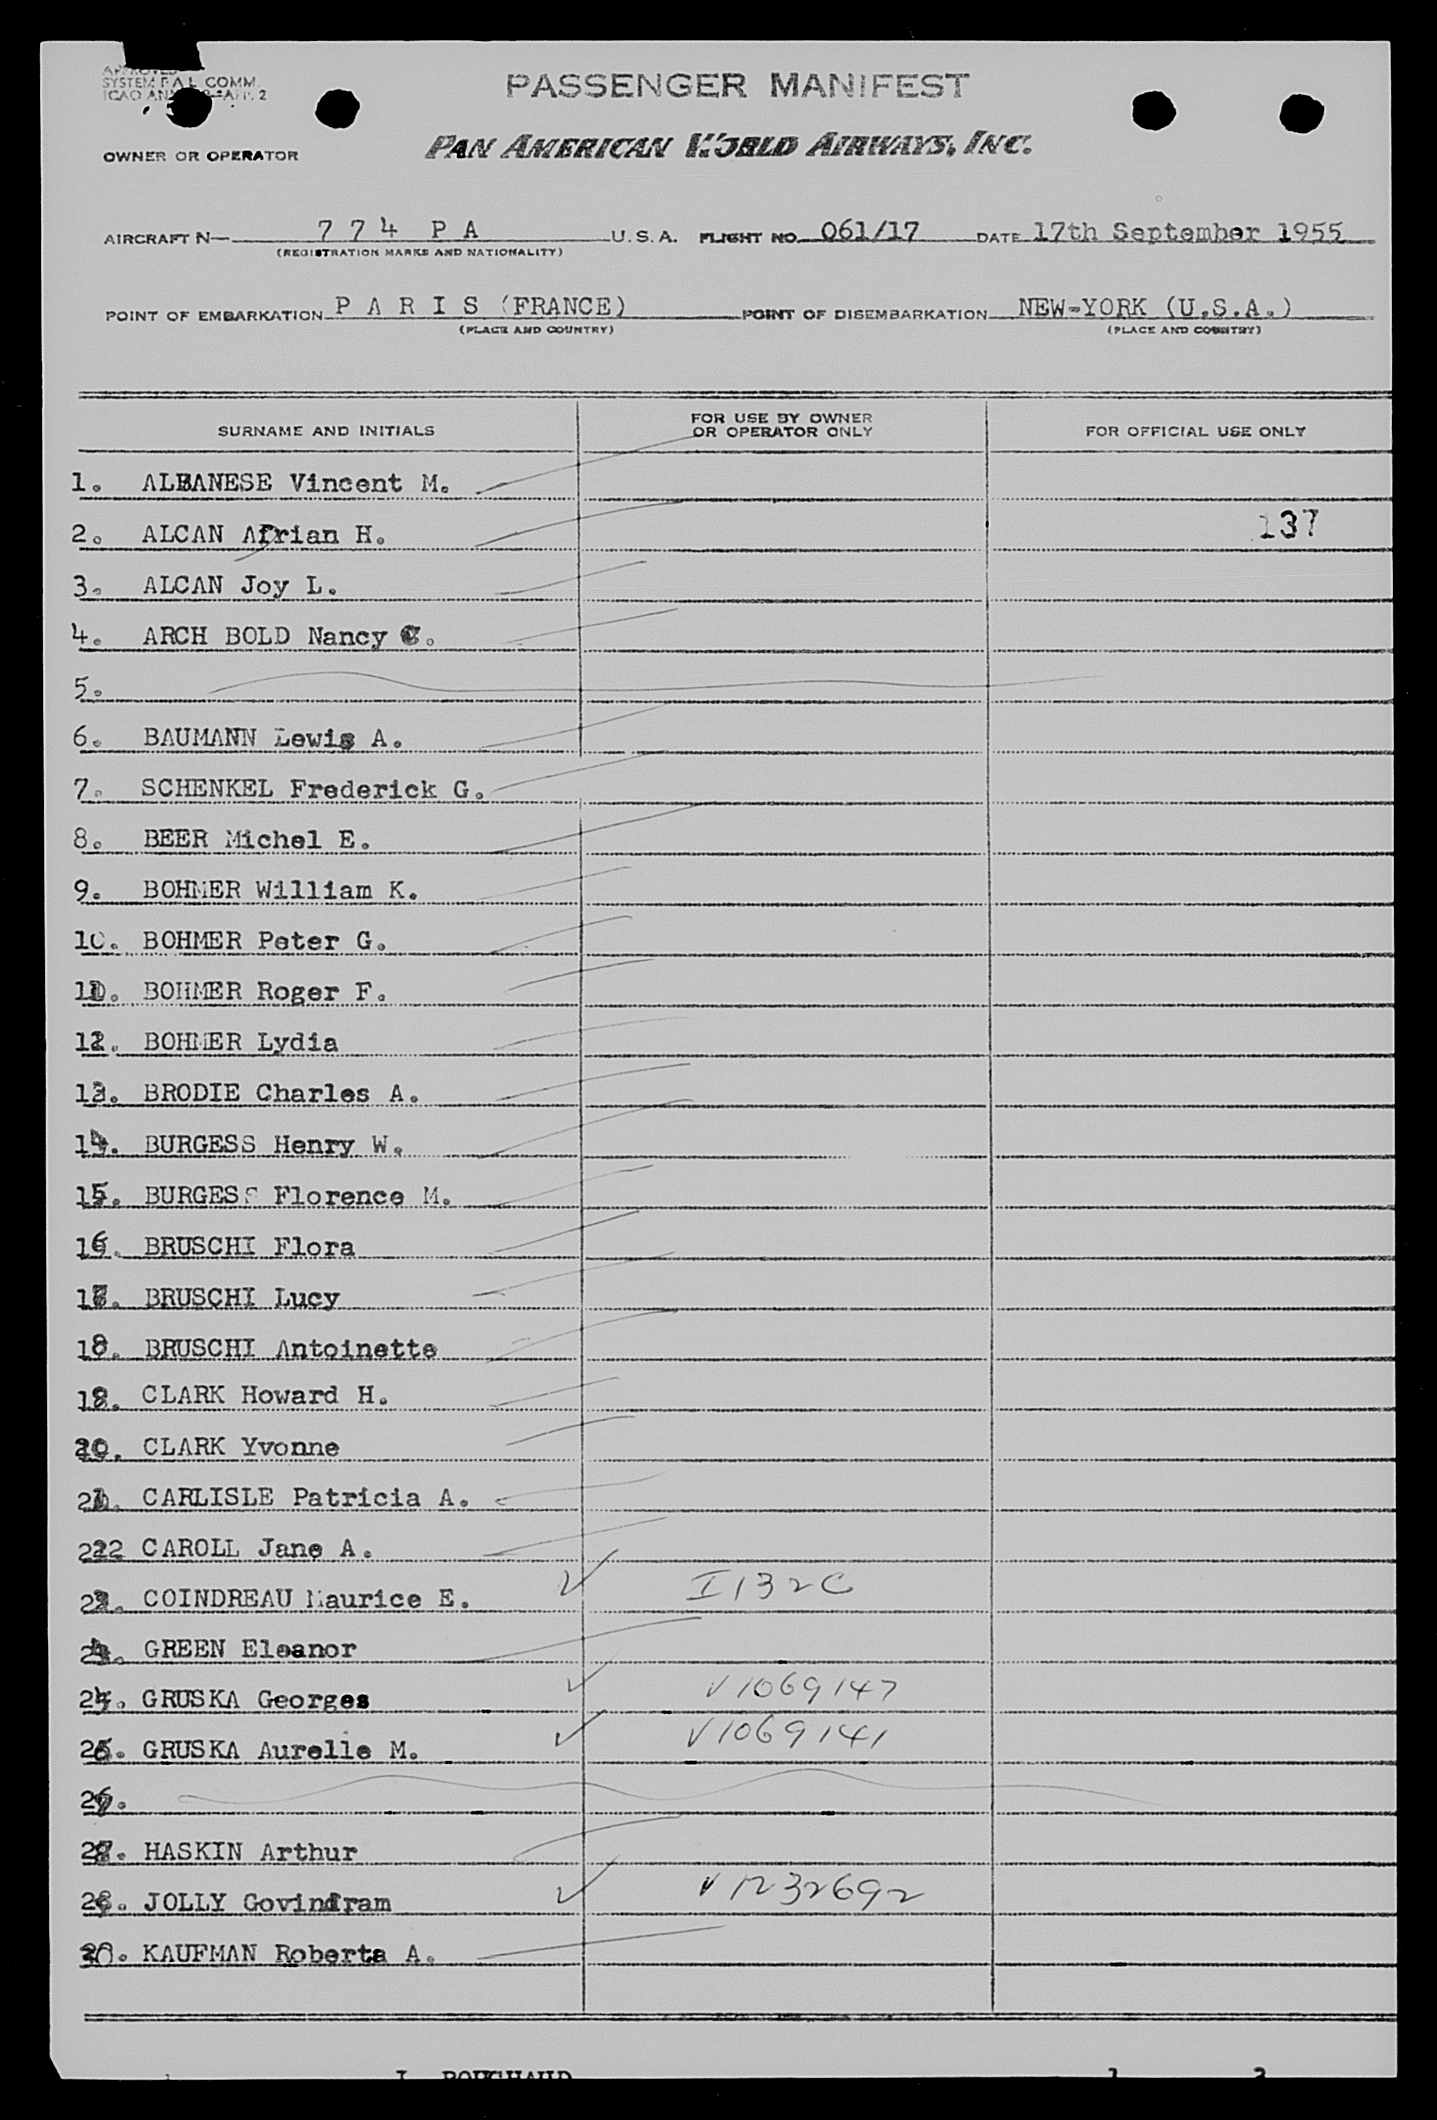 APPROVED
SYSTEM FAL COMM
ICAO
PASSENGER MANIFEST
PAN AMERICAN WORLD AIRWAYS, INC.
OWNER OR OPERATOR
AIRCRAFT N— 7 7 4 P A U.S.A. FLIGHT NO. 061/17 DATE 17th September 1955
(REGISTRATION MARKS AND NATIONALITY)
POINT OF EMBARKATION P A R I S (FRANCE) POINT OF DISEMBARKATION NEW-YORK (U.S.A.)
(PLACE AND COUNTRY) (PLACE AND COUNTRY)
SURNAME AND INITIALS FOR USE BY OWNER OR OPERATOR ONLY FOR OFFICIAL USE ONLY
1. ALBANESE Vincent M.
2. ALCAN Afrian H. 137
3. ALCAN Joy L.
4. ARCH BOLD Nancy C.
5.
6. BAUMANN Lewis A.
7. SCHENKEL Frederick G.
8. BEER Michel E.
9. BOHMER William K.
10. BOHMER Peter G.
11. BOHMER Roger F.
12. BOHMER Lydia
13. BRODIE Charles A.
14. BURGESS Henry W.
15. BURGESS Florence M.
16. BRUSCHI Flora
17. BRUSCHI Lucy
18. BRUSCHI Antoinette
19. CLARK Howard H.
20. CLARK Yvonne
21. CARLISLE Patricia A.
222 CAROLL Jane A.
23. COINDREAU Maurice E. ✓ I132C
24. GREEN Eleanor
25. GRUSKA Georges ✓ V1069147
26. GRUSKA Aurelie M. ✓ V1069141
HASKIN Arthur
JOLLY Govindram ✓ V1232692
KAUFMAN Roberta A.